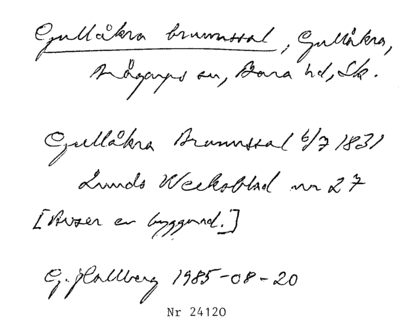 Gullåkra brunnssal, Gullåkra,
Brågarps sn, Bara hd, Sk.
Gullåkra Brunnssal 6/7 1831
Lunds Weckoblad nr 27
[Avser en byggnad.]
G. Hallberg 1985-08-20
Nr 24120